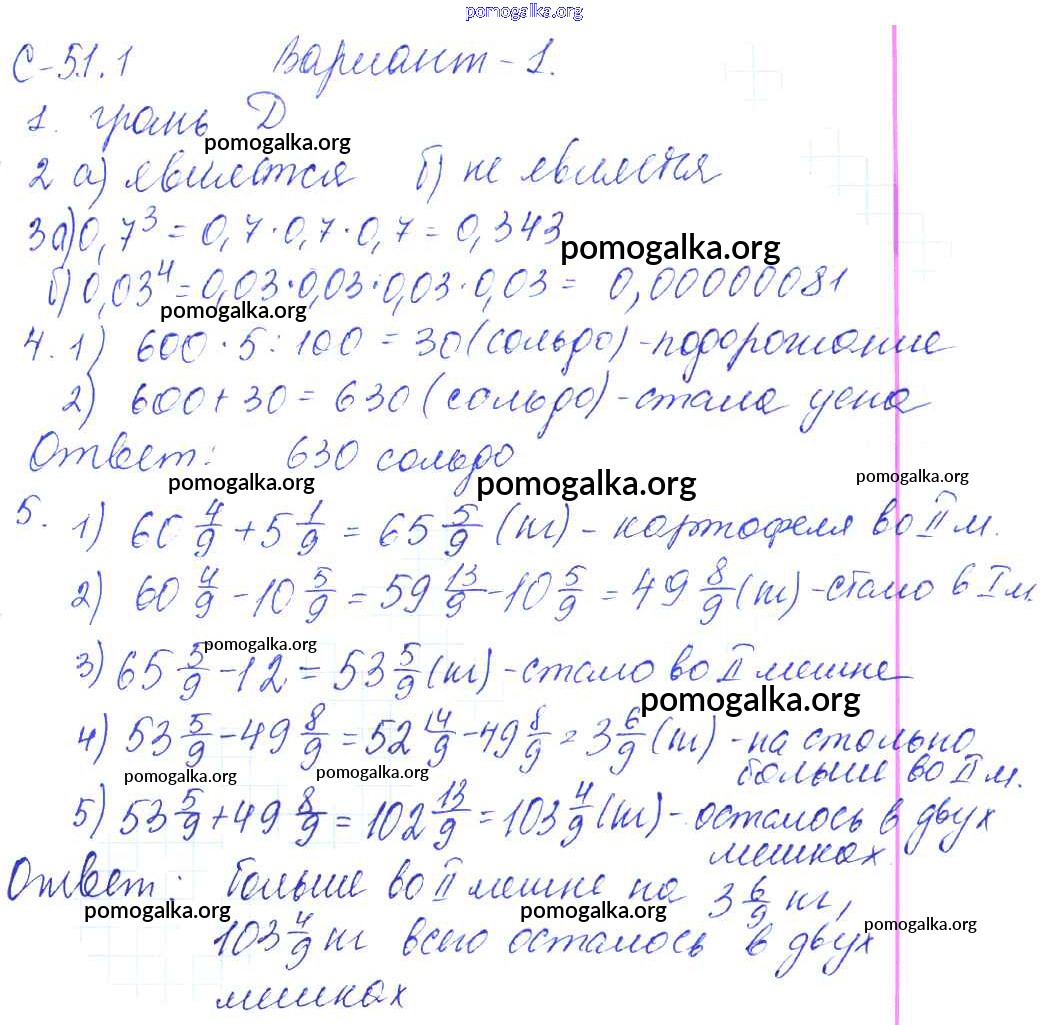 pomogalka.org
С-51.1 Вариант-1.
1. грань D
pomogalka.org
2 а) является б) не является
3а) 0,7³ = 0,7·0,7·0,7 = 0,343
pomogalka.org
б) 0,03⁴ = 0,03·0,03·0,03·0,03 = 0,00000081
pomogalka.org
4. 1) 600·5:100 = 30 (сольдо) - подорожание
2) 600+30 = 630 (сольдо) - стала цена
Ответ: 630 сольдо
pomogalka.org pomogalka.org pomogalka.org
5. 1) 60 4/9 + 5 1/9 = 65 5/9 (кг) - картофеля во II м.
2) 60 4/9 - 10 5/9 = 59 13/9 - 10 5/9 = 49 8/9 (кг) - стало в I м.
pomogalka.org
3) 65 5/9 - 12 = 53 5/9 (кг) - стало во II мешке
pomogalka.org
4) 53 5/9 - 49 8/9 = 52 14/9 - 49 8/9 = 3 6/9 (кг) - на столько
больше во II м.
pomogalka.org pomogalka.org
5) 53 5/9 + 49 8/9 = 102 13/9 = 103 4/9 (кг) - осталось в двух
мешках
Ответ: больше во II мешке на 3 6/9 кг,
pomogalka.org pomogalka.org pomogalka.org
103 4/9 кг всего осталось в двух
мешках